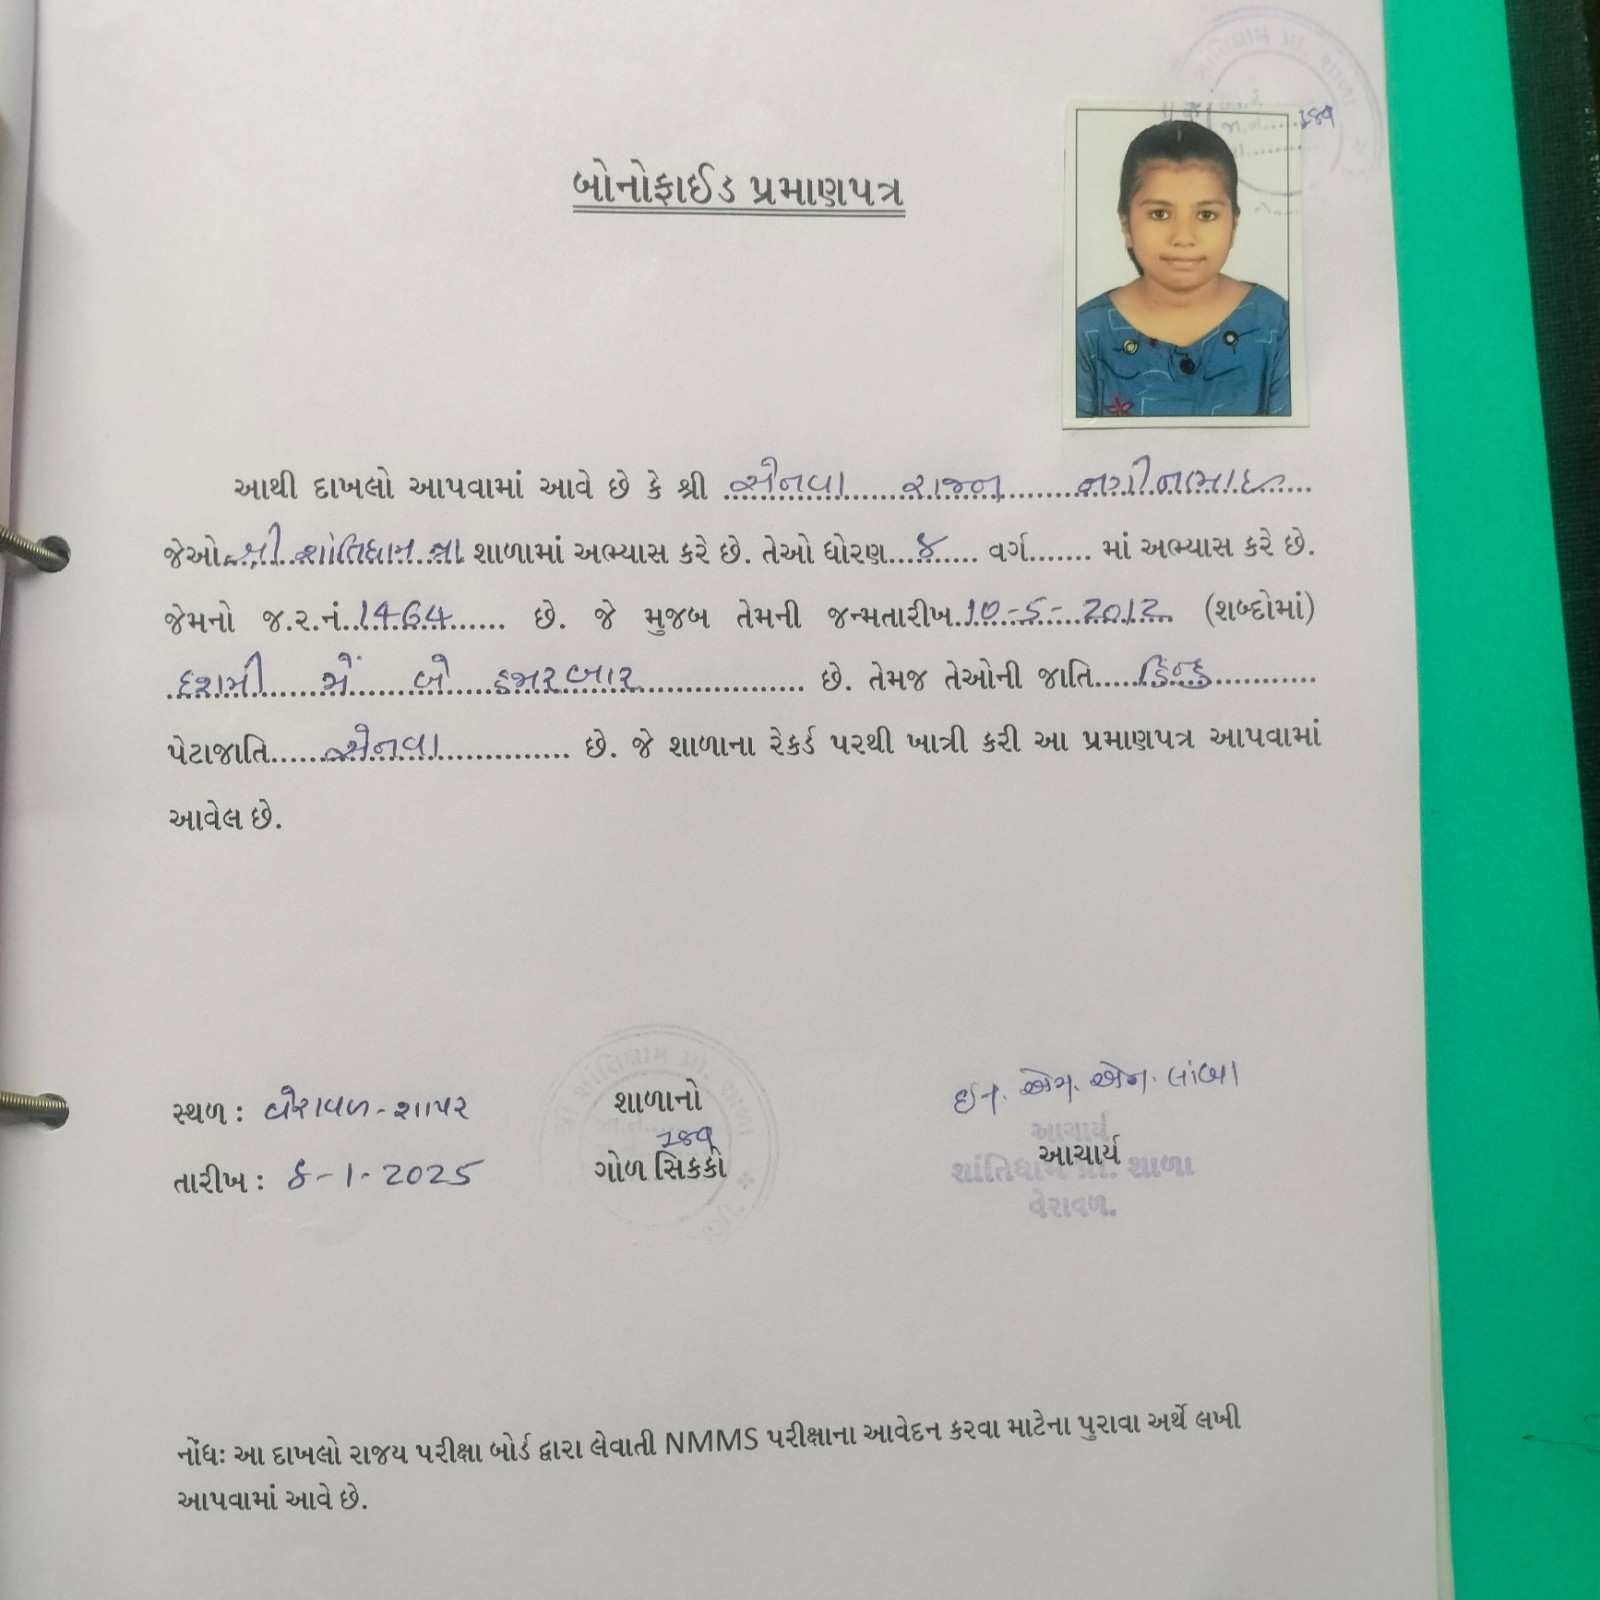 બોનોફાઈડ પ્રમાણપત્ર
આથી દાખલો આપવામાં આવે છે કે શ્રી સેનવા રાજન નગીનભાઇ
જેઓ શ્રી શાંતિધામ પ્રા શાળામાં અભ્યાસ કરે છે. તેઓ ધોરણ...૪.... વર્ગ....... માં અભ્યાસ કરે છે.
જેમનો જ.ર.નં. 1464 ...... છે. જે મુજબ તેમની જન્મતારીખ. 10-5-2012 (શબ્દોમાં)
દશમી મેં બે હજારબાર ................ છે. તેમજ તેઓની જાતિ..... હિન્દુ ............
પેટાજાતિ...... સેનવા ............. છે. જે શાળાના રેકર્ડ પરથી ખાત્રી કરી આ પ્રમાણપત્ર આપવામાં
આવેલ છે.
ઇન. એચ. એન. લાંબા
સ્થળ : વેરાવળ - શાપર શાળાનો આચાર્ય
તારીખ : ૪-1-2025 ગોળ સિક્કો આચાર્ય
શાંતિધામ પ્રા. શાળા
વેરાવળ.
નોંધઃ આ દાખલો રાજય પરીક્ષા બોર્ડ દ્વારા લેવાતી NMMS પરીક્ષાના આવેદન કરવા માટેના પુરાવા અર્થે લખી
આપવામાં આવે છે.